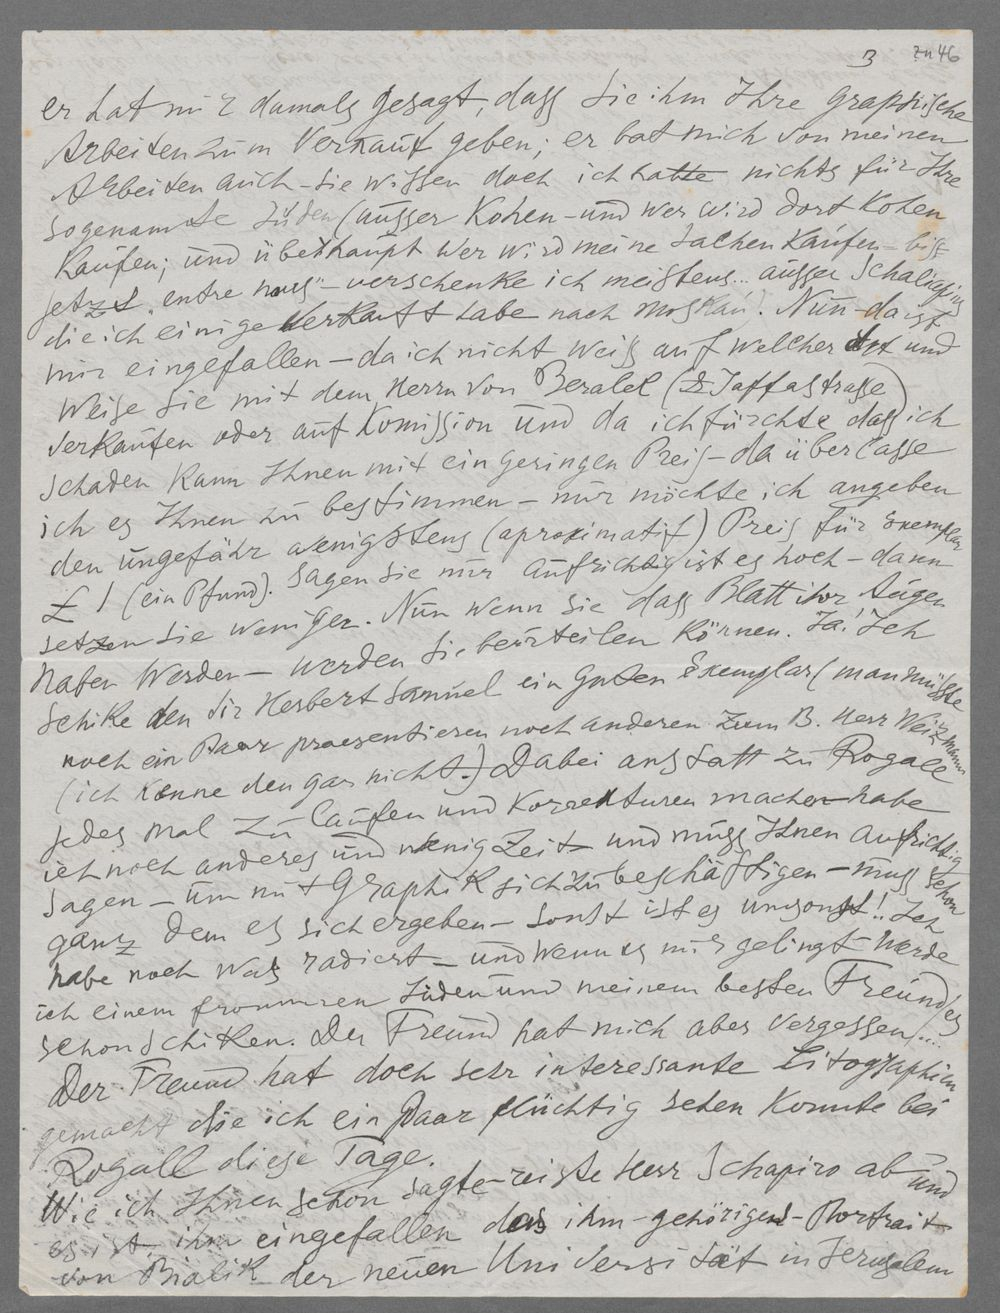 3 zu 46
er hat mir damals gesagt, dass Sie ihm Ihre graphische
Arbeiten zum Verkauf geben; er bat mich von meinen
Arbeiten auch – Sie wissen doch ich hatte nichts für Ihre
sogenannte Juden (ausser Kohen – und wer wird dort Kohen
Kaufen; und überhaupt wer wird meine Sachen Kaufen – biss
jetzt "entre nous" – verschenke ich meistens... ausser Schaliapins
die ich einige verkauft habe nach Moskau). Nun – da ist
mir eingefallen – da ich nicht weiss auf welcher Art und
Weise Sie mit dem Herrn von Bezalel (Jaffastrasse)
verkaufen oder auf Komission und da ich fürchte dass ich
schaden Kann Ihnen mit ein geringen Preis – da überlasse
ich es Ihnen zu bestimmen – nur möchte ich angeben
den ungefähr wenigstens (aproximatif) Preis für Exemplar
£ 1 (ein Pfund). Sagen Sie mir aufrichtig ist es hoch – dann
setzen Sie weniger. Nun wenn Sie dass Blatt vor Augen
haben werden – werden Sie beurteilen Können. Ja! Ich
schike den Sir Herbert Samuel ein guten Exemplar (man müsste
noch ein Paar praesentieren noch anderen zum B. Herr Weizmann
(ich Kenne den gar nicht.) Dabei anstatt zu Rogall
jedes mal zu laufen und Korrekturen machen habe
ich noch anderes und wenig Zeit – und muss Ihnen aufrichtig
sagen – um mit Graphik sich zu beschäftigen – muss schon
ganz dem es sich ergeben – sonst ist es umsonst!! Ich
habe noch was radiert – und wenn es mir gelingt – werde
ich einem frommen Juden und meinem besten Freund es
schon schiken. Der Freund hat mich aber vergessen....
Der Freund hat doch sehr interessante Litographien
gemacht die ich ein Paar flüchtig sehen Konnte bei
Rogall diese Tage.
Wie ich Ihnen schon sagte – reiste Herr Schapiro ab – und
es ist ihm eingefallen das ihm – gehörigen – Portrait
von Bialik der neuen Universität in Jerusalem